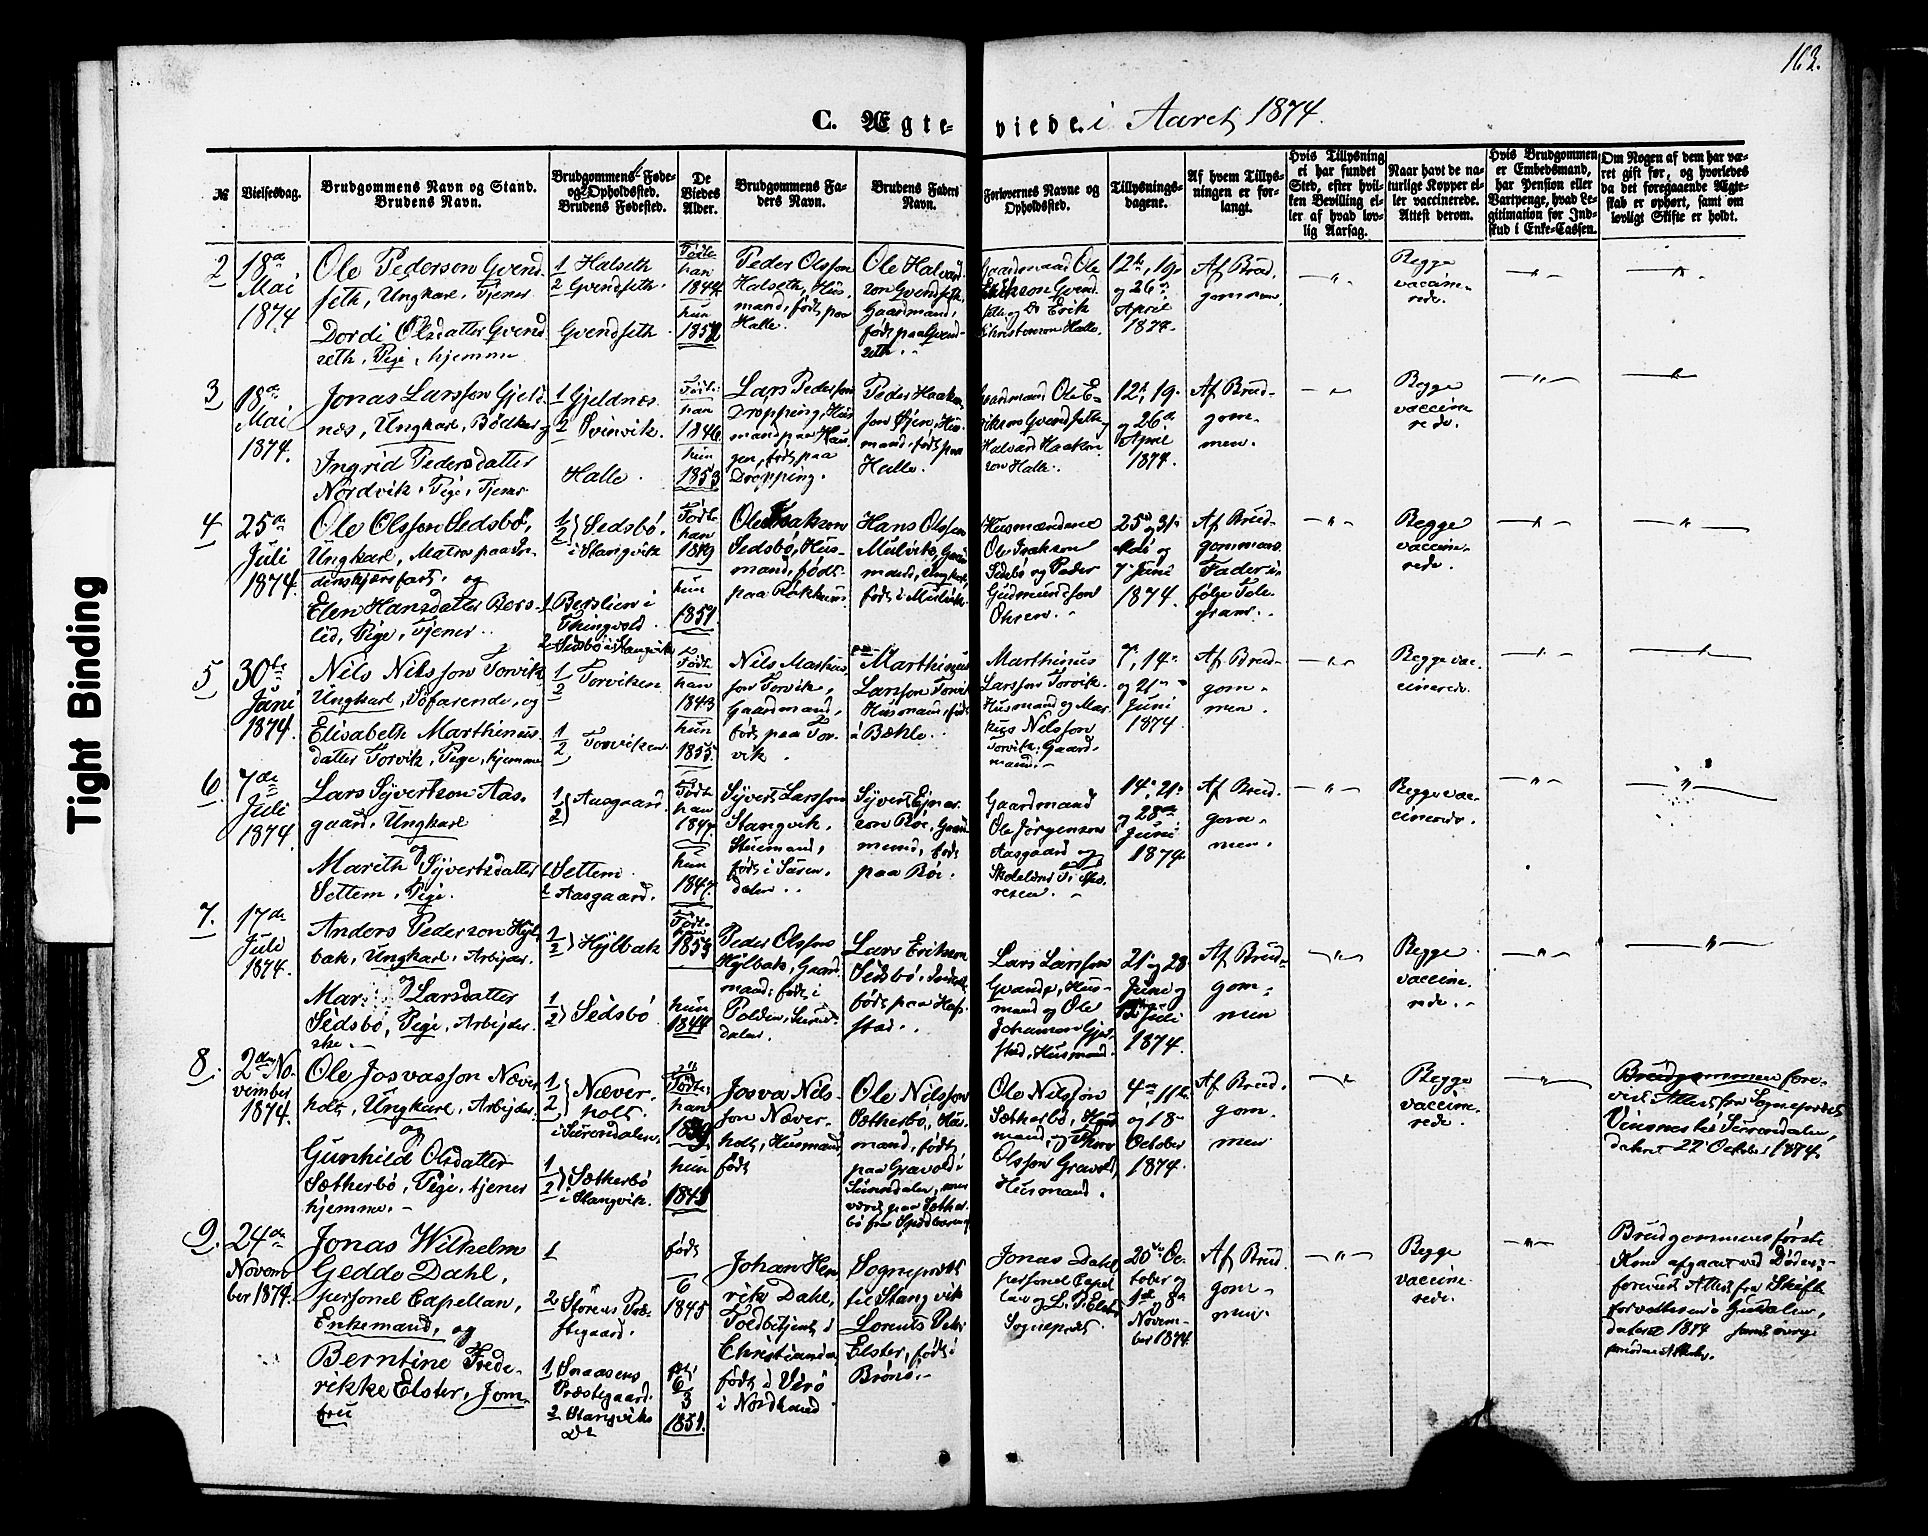 163.
C. Ægte- viede. i Aaret 1874.
Tight Binding
№
Vielsesdag.
Brudgommens Navn og Stand.
Brudens Navn.
Brudgommens Føde-
og Opholdssted.
Brudens Fødested.
De
Viedes
Alder.
Brudgommens Fa-
ders Navn.
Brudens Faders
Navn.
Forlovernes Navne og
Opholdssted.
Tillysnings-
dagene.
Af hvem Tillys-
ningen er for-
langt.
Hvis Tillysning
ei har fundet
Sted, efter hvil-
ken Bevilling el-
ler af hvad lov-
lig Aarsag.
Naar havt de na-
turlige Kopper el-
ler vaccinerede.
Attest derom.
Hvis Brudgommen
er Embedsmand,
har Pension eller
Vartpenge, hvad Le-
gitimation for Ind-
skud i Enke-Cassen.
Om Nogen af dem har væ-
ret gift før, og hvorledes
da det foregaaende Ægte-
skab er ophørt, samt om
lovligt Skifte er holdt.
2
18de
Mai
1874
Ole Pederson Gvend
seth, Ungkarl, Tjener
og
Dordi Olsdatter Gvend
seth, Pige, hjemme
1 Halseth
2 Gvendseth.
Gvendseth
Fødte
han
1844
hun
1852
Peder Olsson
Halseth, Hus-
mand, født paa
Halle.
Ole Halvard
son Gvendseth,
Gaardmand,
født paa Gvend-
seth.
Gaardmand Ole
Erikson Gvend-
seth og Do Erik
Christenson Halle.
12te, 19.
og 26
April
1874.
Af Brud-
gommen.
Begge
vaccine-
rede.
3
18de
Mai
1874.
Jonas Larsson Gjeld
næs, Ungkarl, Bødker og
Ingrid Pedersdatter
Nordvik, Pige, Tjener
1 Gjeldnæs
2 Svinvik.
Halle.
Født:
han
1846
hun
1853
Lars Pederson
Dropping, Hus
mand paa Hau-
gen, født paa
Dropping.
Peder Haakon
son Øien, Hus-
mand, født paa
Halle.
Gaardmand Ole E-
rikson Gvendseth og
Halvard Haakon
son Halle.
12te, 19.
og 26de
April
1874.
Af Brud-
gom-
men.
Begge
vaccine
rede.
4
25de
Juli
1874.
Ole Olsson Sedsbø,
Ungkarl, Matros paa In-
denskjærsfart, og
Elen Hansdatter Bers-
lid, Pige, Tjener.
1
2 } Sedsbø.
i Stangvik
1 Berslien i
Thingvold.
2 Sedsbø i Stangvik
Fødte
han
1849
hun
1851.
Ole Isakson
Sedsbø, Hus-
mand, født
paa Røkkum.
Hans Olsson
Mulvik, Gaard
mand, Ungkarl,
født i Mulvik.
Husmændene
Ole Isakson
Sedsbø og Peder
Gudmundson
Øhren.
25de 31te
Mai og
7de Juni
1874.
Af Brud-
gommens
Fader i-
følge Tele-
gram.
Begge
vaccine-
rede.
5
30te
Juni
1874.
Nils Nilsson Torvik
Ungkarl, Søfarende, og
Elisabeth Marthinus-
datter Torvik, Pige, hjemme
1
2 Torviken
1
2 Torviken
Født
han
1843
hun
1855.
Nils Markus
son Torvik,
Gaardmand,
født paa Tor-
vik.
Marthinus
Larsson Torvik
Husmand, født
i Bæhle.
Marthinus
Larsson Torvik
Husmand og Mar-
kus Nilsson
Torvik, Gaard-
mand.
7de, 14de
og 21de
Juni
1874.
Af Brud-
gom-
men.
Begge vac-
cinerede.
6
7de
Juli
1874
Lars Syvertson Aas-
gaard, Ungkarl
og
Marith Syvertsdatter
Settem, Pige.
1
2 } Aasgaard
1 Settem
2 Aasgaard.
Fødte
han
1847
hun
1847.
Syvert Larsson
Stangvik,
Stuemand,
født i Suren-
dalen.
Syvert Ejnar
son Røe, Gaard
mand, født
paa Røe.
Gaardmand
Ole Jørgenson
Aasgaard og
14de, 21de
og 28de
Juni
1874.
Af Brud-
gom-
men.
Begge vac-
cinerede.
7.
17de
Juli
1874.
Anders Pederson Hyl
bak, Ungkarl, Arbejder
og
Larsdatter
Sedsbø, Pige, Arbejder
ske.
1
2 } Hylbak
1
2 } Sedsbø
Født
1853
hun
1844
Peder Olsson
Hylbak, Gaard
mand, født i
Surend-
dalen.
Lars Erikson
Sedsbø,
født paa Haf-
stad.
Lars Larsson
Gvande, Hus-
mand og Ole
Johanson Gjer-
stad, Husmand.
21de og 28
Juni og
Juli
1874.
Af Brud-
gom-
men
Begge
vaccine-
rede.
8.
2den No
vember
1874.
Ole Josvasson Næver
holt, Ungkarl, Arbejder
og
Gunhild Olsdatter
Sætherbø, Pige, tjener
hjemme.
1
2 } Næver-
holt.
i Surendalen.
1
2 } Sætherbø
i Stangvik.
Fødte
han
1839
hun
1843
Josva Nils-
son Næver-
holt, Husmand
født
Ole Nilsson
Sætherbø, Hus-
mand, født
paa Gravold i
Surendalen, men
været paa Sæther-
bø fra Spædbarn af
Ole Nilsson
Sætherbø, Hus
mand, og Thore
Olsson Gravold,
Husmand.
4de 11te
og 18de
October
1874.
Af Brud-
gom-
men
Begge
vaccine-
rede.
Brudgommen fore-
vist Attest fra Sognepræst
Vinsnes til Surendalen,
dateret 22 October 1874.
9.
24de
Novem
ber 1874.
Jonas Wilhelm
Gedde Dahl,
personel Capellan,
Enkemand, og
Berntine Frede-
rikke Elster, Jom-
fru
1
2 Størens Præ-
stegaard.
1 Snaasens
Præstegaard.
2 Stangviks
Do
født
6
1845
6
3
1851.
Johan Hen
rik Dahl,
Toldbetjent i
Christiansund,
født i Verø
i Nordland
Sognepræst
til Stangvik
Lorents Peter
Elster, født i
Brønø.
Jonas Dahl
personel Capel
lan og L. P. Elster
Sognepræst.
25de Oc-
tober og
1ste og 8de
Novem-
ber 1874.
Af Brud
gom-
men.
Begge
vaccine-
rede.
Brudgommens første
Kone afgaaet ved Døden,
forevist Attest fra Skifte
forvalteren i Guldalen,
dateret 1874